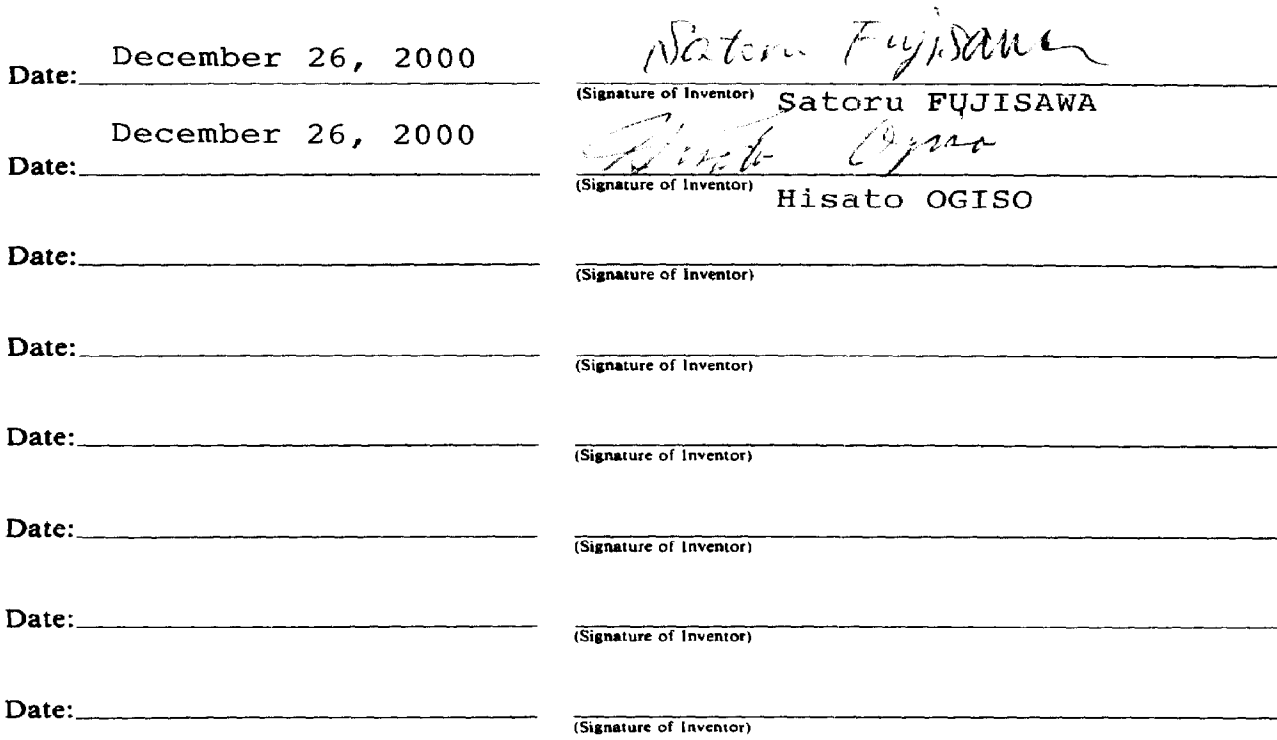 Satoru Fujisawa
Date: December 26, 2000
(Signature of Inventor) Satoru FUJISAWA
Hisato Ogiso
Date: December 26, 2000
(Signature of Inventor) Hisato OGISO
Date:
(Signature of Inventor)
Date:
(Signature of Inventor)
Date:
(Signature of Inventor)
Date:
(Signature of Inventor)
Date:
(Signature of Inventor)
Date:
(Signature of Inventor)